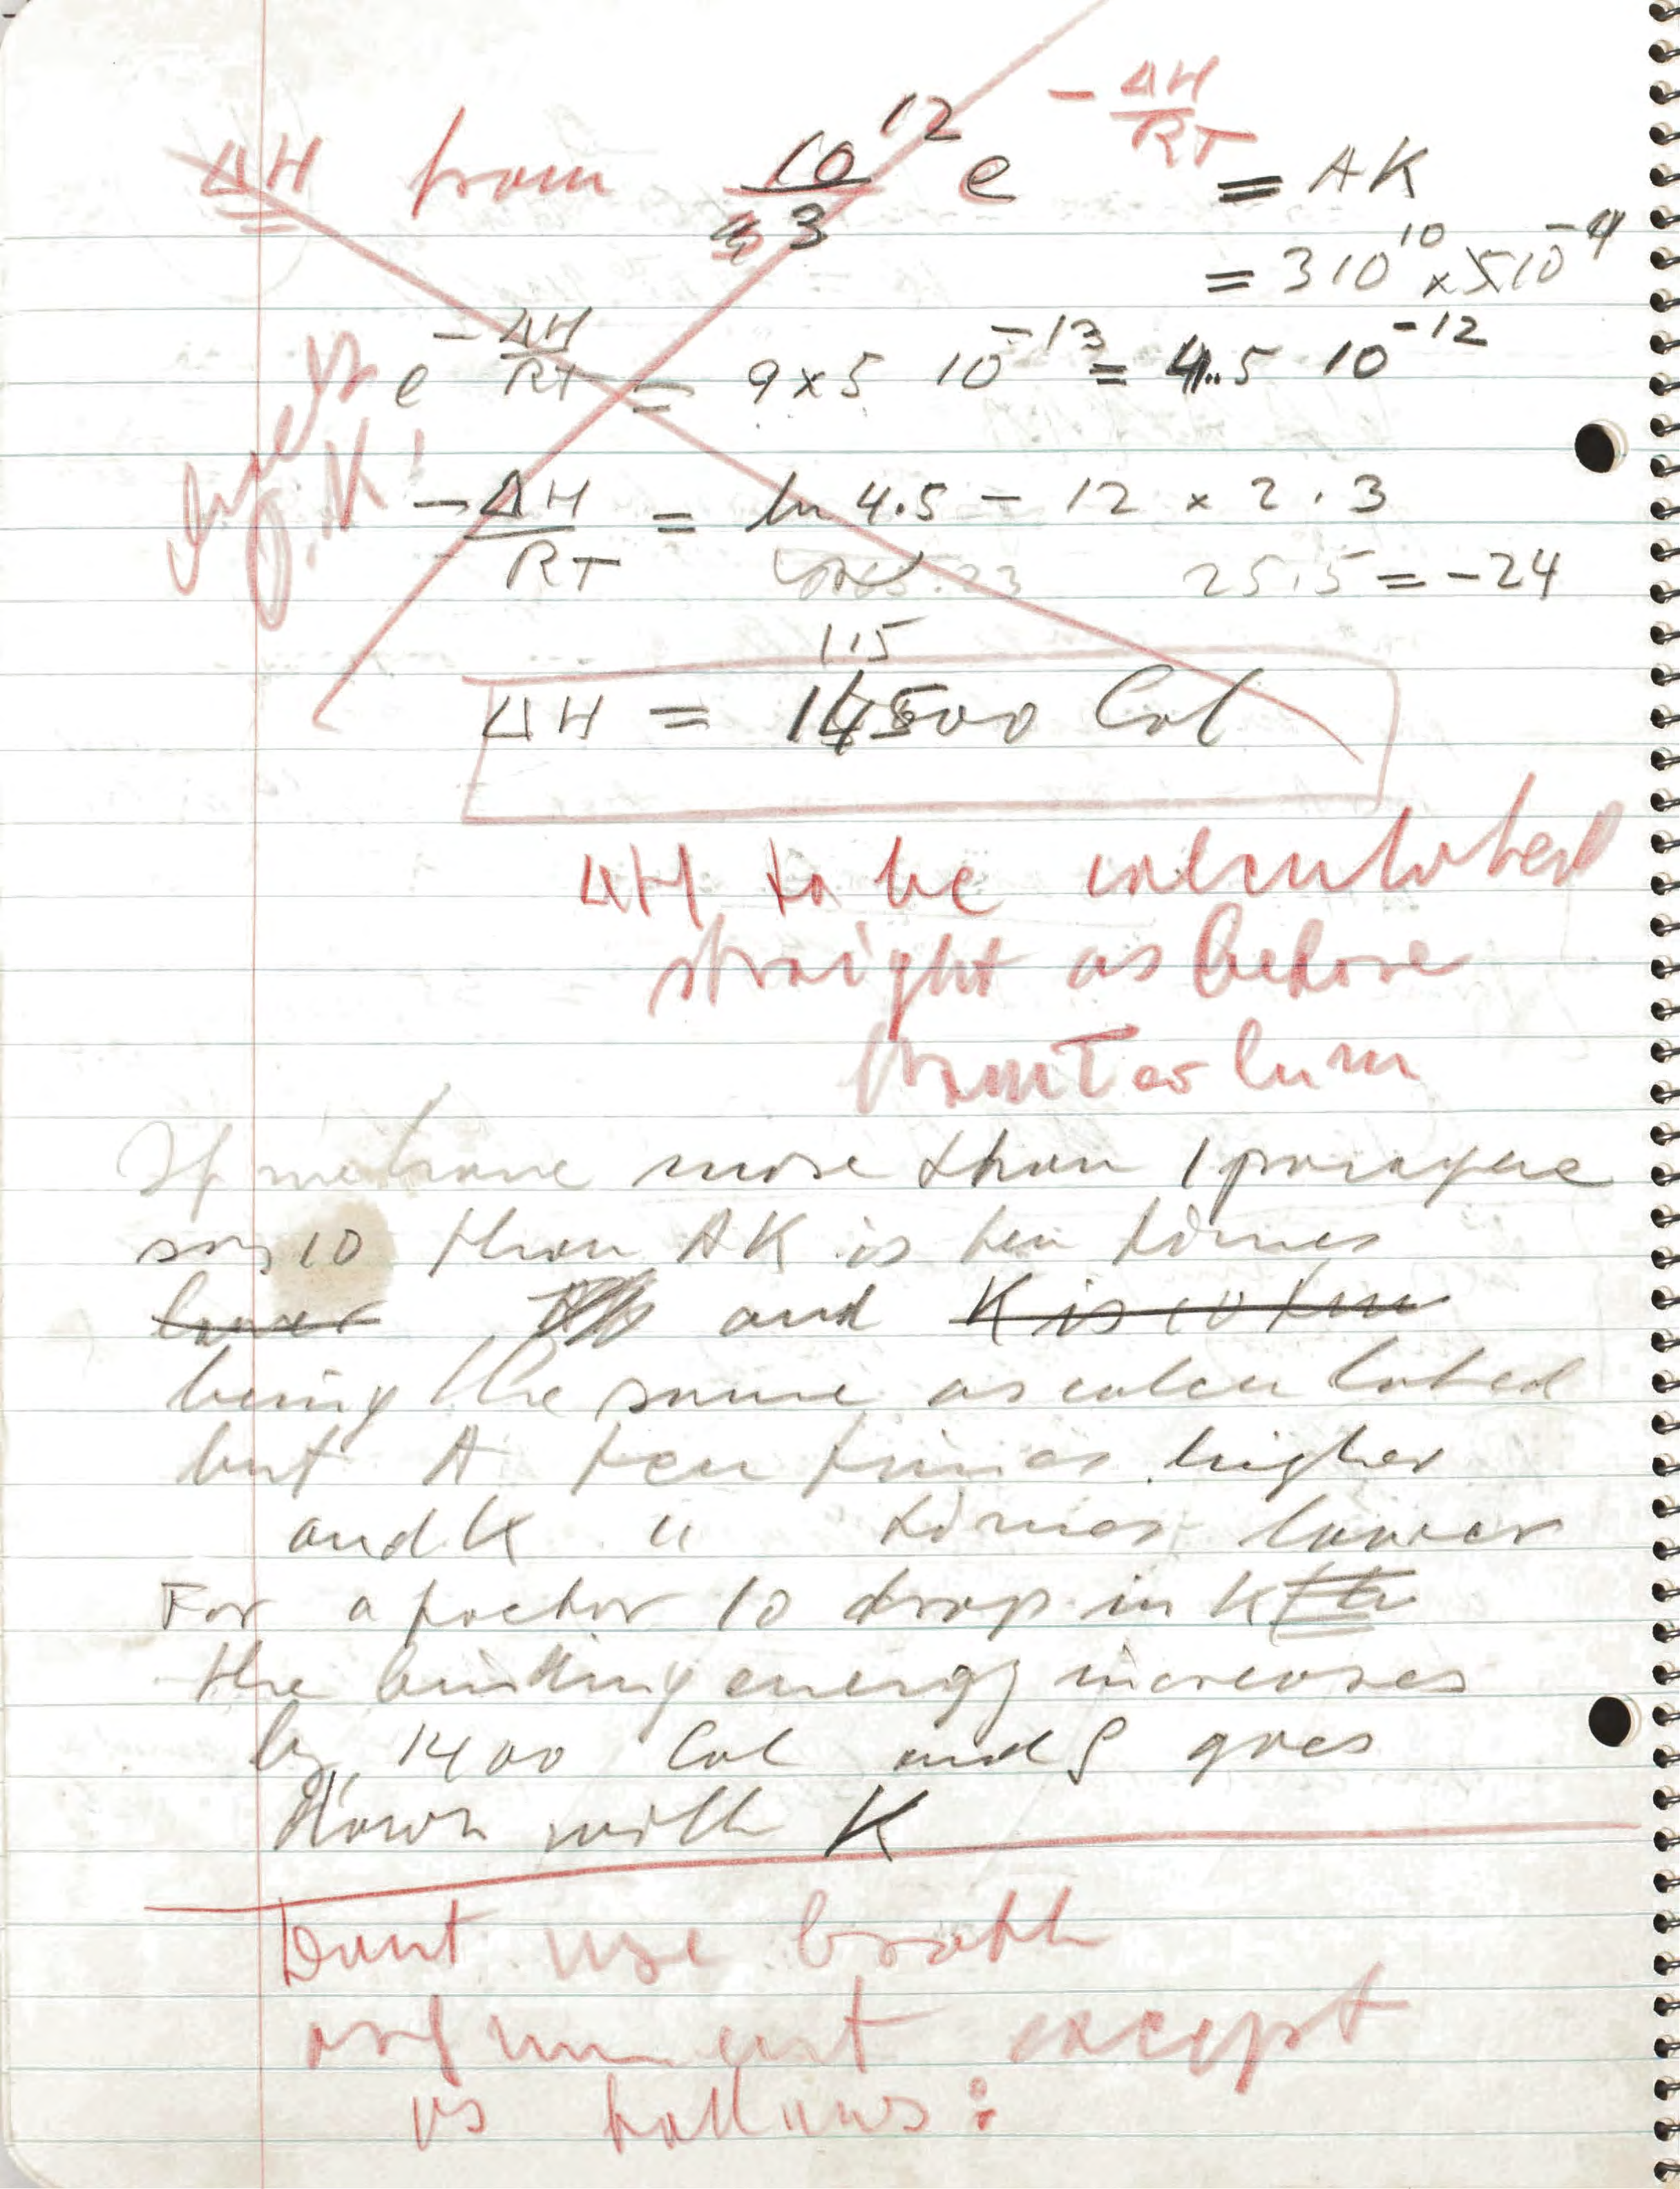 ΔH from 10^12/3 e^(-ΔH/RT) = AK
= 3 10^10 × 5 10^-4
e^(-ΔH/RT) = 9 × 5 10^-13 = 4.5 10^-12
O.K!
-ΔH/RT = ln 4.5 - 12 × 2.3
25.5 = -24
1.5
ΔH = 14500 Cal
ΔH to be calculated
straight as before
If we have more than 1 
say 10 then AK is ten times
lower and K is 10 times
being the same as calculated
but A ten times higher
and K " times lower
For a factor 10 drop in K
the binding energy increases
by 1400 Cal and ρ goes
down with K
Dont use broth
argument except
as follows: